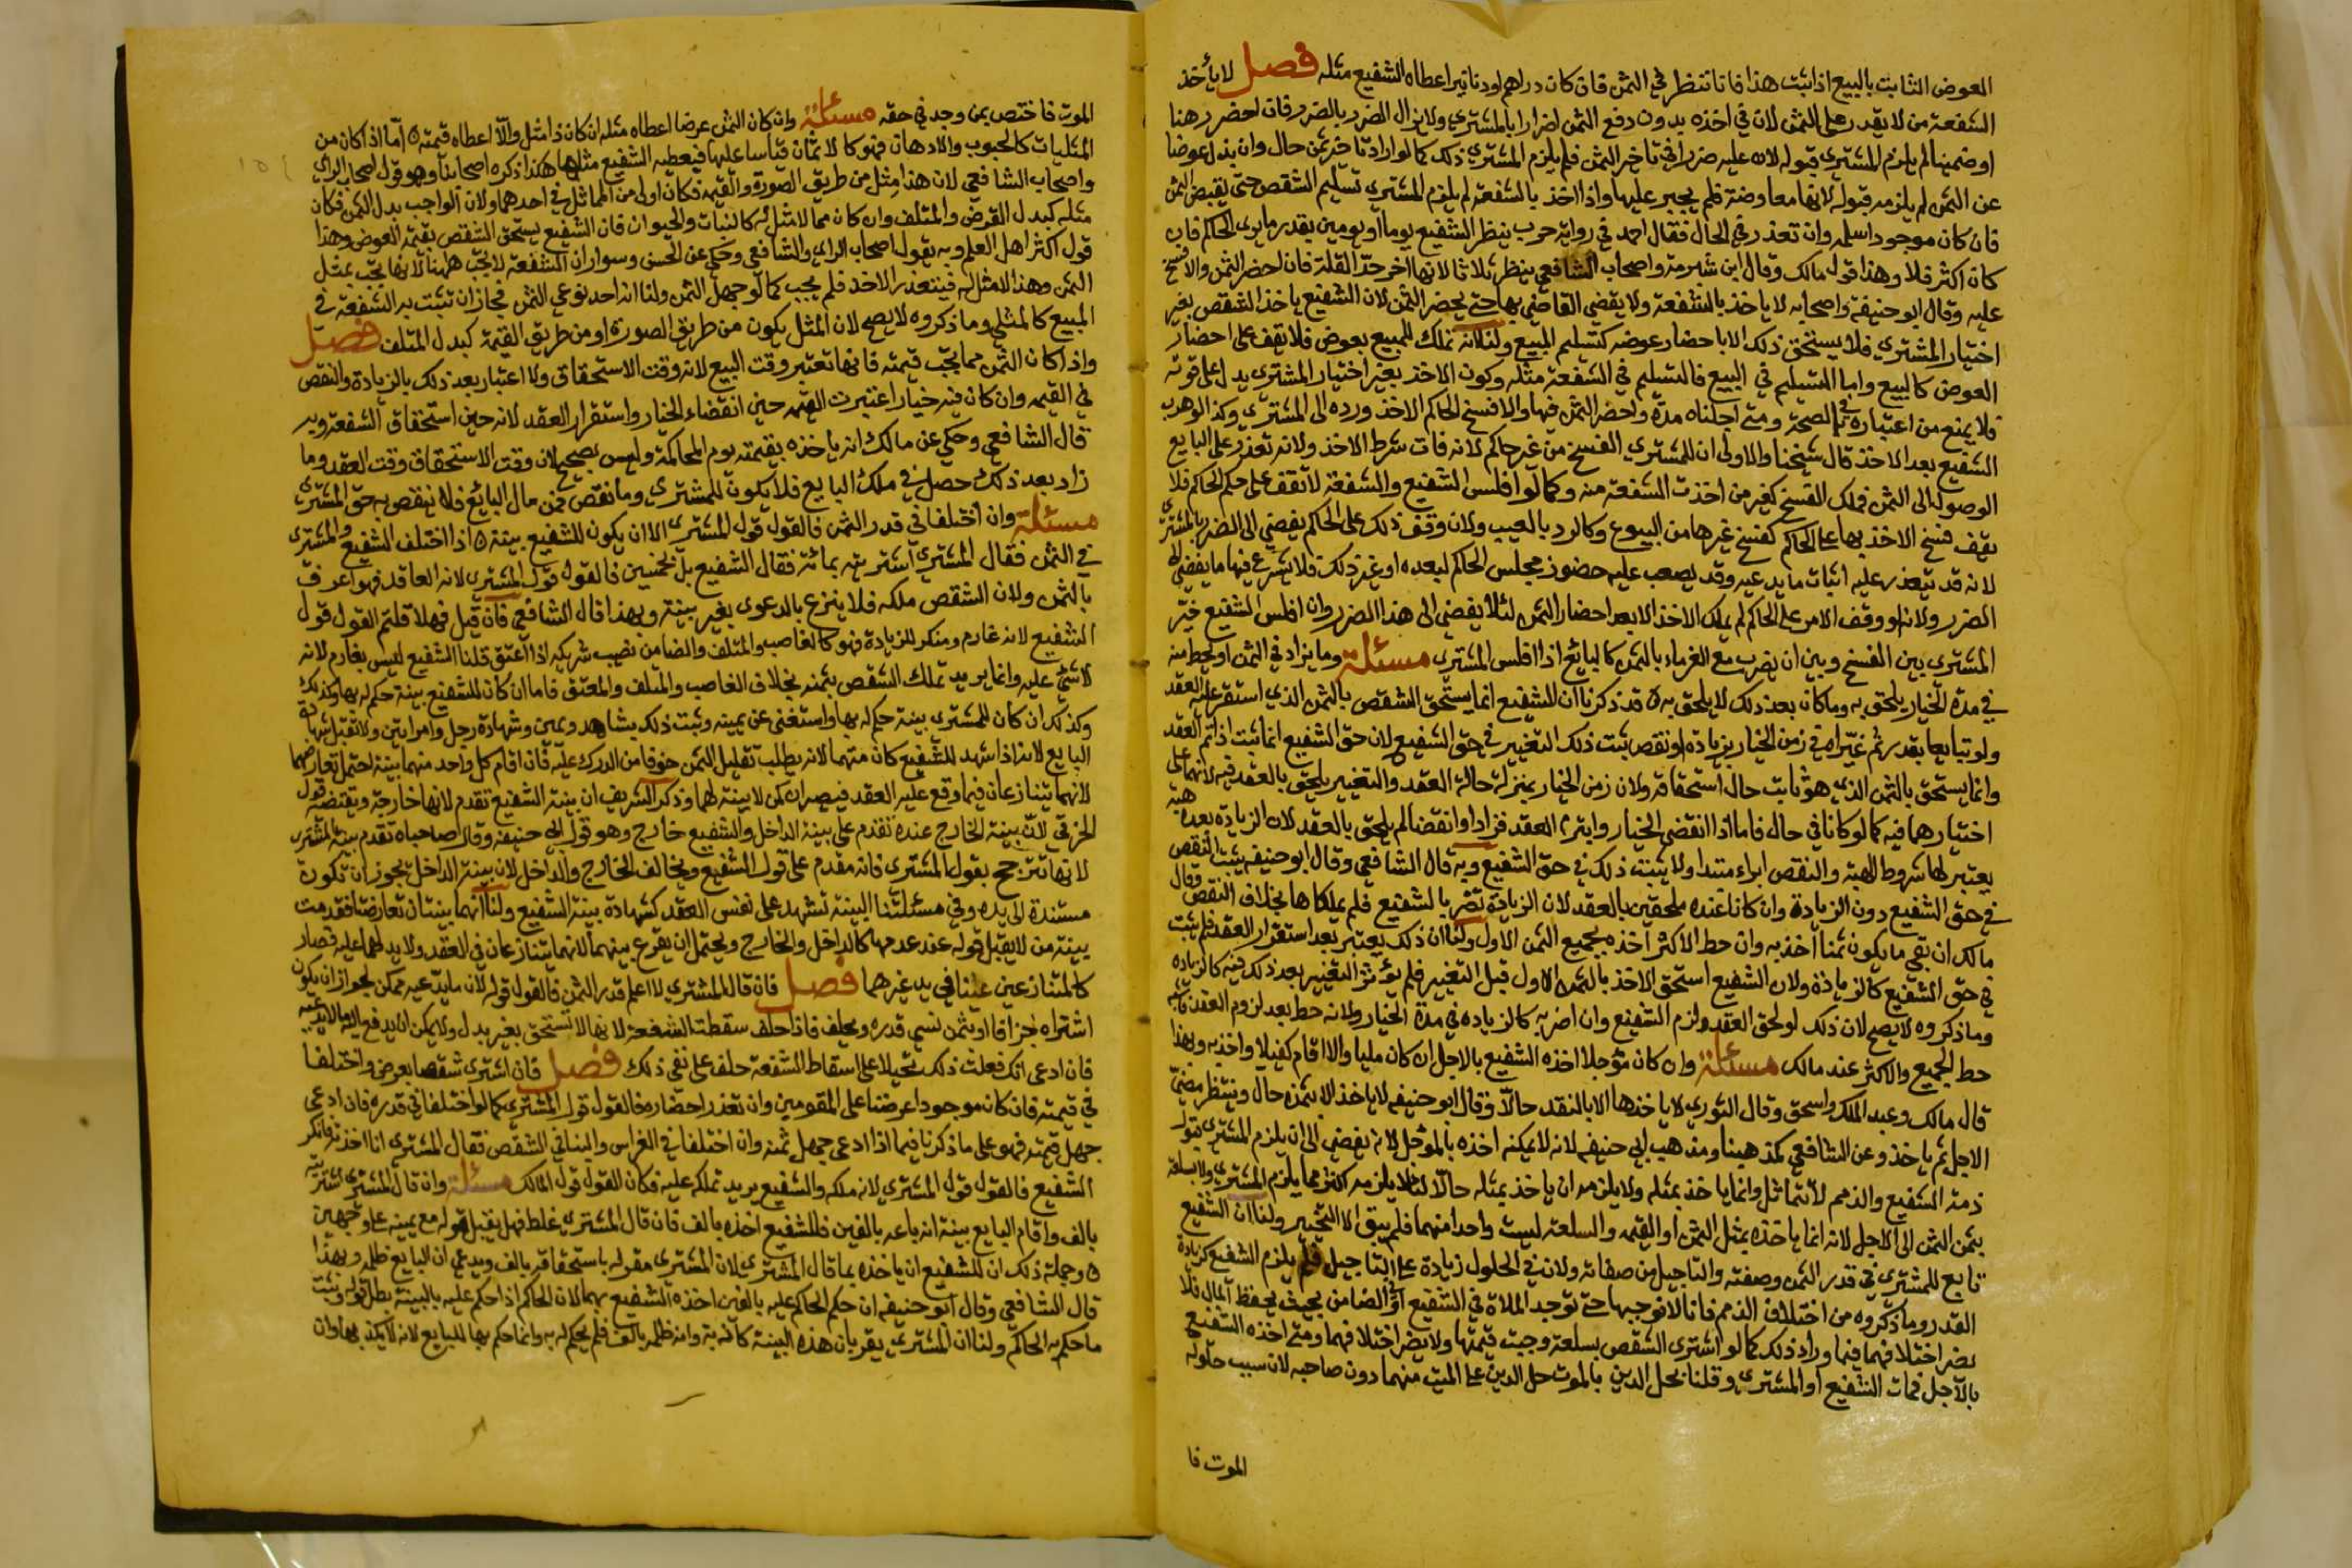 العوض الثابت بالبيع اذا ثبت هذا فانا ننظر في الثمن فان كان دراهم او دنانير اعطاه الشفيع مثله فصل لا يأخذ
الشفعة من لا يقدر على الثمن لان في اخذه بدون دفع الثمن اضرارا بالمشتري ولا يزال الضرر بالضرر فان احضر رهنا
او ضمينا لم يلزم المشتري قبوله لان عليه ضررا في تاخير الثمن فلم يلزم المشتري ذلك كما لو اراد تاخير ثمن حال وان بذل عوضا
عن الثمن لم يلزمه قبوله لانها معاوضة فلم يجبر عليها واذا اخذ بالشفعة لم يلزم المشتري تسليم الشقص حتى يقبض الثمن
فان كان موجودا سلمه وان تعذر في الحال فقال احمد في رواية حرب ينظر الشفيع يوما او يومين بقدر ما يرى الحاكم فان
كان اكثر فلا وهذا قول مالك وقال ابن شبرمة واصحاب الشافعي ينظر ثلاثا لانها اخر حد القلة فان احضر الثمن والا فسخ
عليه وقال ابو حنيفة واصحابه لا ياخذ بالشفعة ولا يقضي القاضي بها حتى يحضر الثمن لان الشفيع ياخذ الشقص بغير
اختيار المشتري فلا يستحق ذلك الا باحضار عوضه كتسليم المبيع ولنا انه تملك للمبيع بعوض فلا تقف على احضار
العوض كالبيع واما التسليم في البيع فالتسليم في الشفعة مثله وكون الاخذ بغير اختيار المشتري يدل على قوته
فلا يمنع من اعتباره في الصحة ومتى اجلناه مدة واحضر الثمن فيها والا فسخ الحاكم الاخذ ورده الى المشتري وكذا لو هرب
الشفيع بعد الاخذ قال شيخنا والاولى ان للمشتري الفسخ من غير حاكم لانه فات شرط الاخذ ولانه تعذر على البايع
الوصول الى الثمن فملك الفسخ كغير من اخذت الشفعة منه وكما لو افلس الشفيع والشفعة لا تقف على حكم الحاكم فلا
يقف فسخ الاخذ بها على الحاكم كفسخ غيرها من البيوع وكالرد بالعيب ولان وقف ذلك على الحاكم يفضي الى الضرر بالمشتري
لانه قد يتعذر عليه اثبات ما يدعيه وقد يصعب عليه حضور مجلس الحاكم لبعده او غير ذلك فلا يشرع فيها ما يفضي الى
الضرر ولانه لو وقف الامر على الحاكم لم يملك الاخذ الا بعد احضار الثمن لئلا يفضي الى هذا الضرر وان افلس الشفيع خير
المشتري بين الفسخ وبين ان يضرب مع الغرماء بالثمن كالبائع اذا افلس المشتري مسئلة وما يزاد في الثمن او يحط منه
في مدة الخيار يلحق به وما كان بعد ذلك لا يلحق به ه قد ذكرنا ان الشفيع انما يستحق الشقص بالثمن الذي استقر عليه العقد
ولو تبايعا بقدر ثم غيراه في زمن الخيار بزيادة او نقص ثبت ذلك التغيير في حق الشفيع لان حق الشفيع انما ثبت اذا تم العقد
وانما يستحق بالثمن الذي هو ثابت حال استحقاقه ولان زمن الخيار بمنزلة حالة العقد والتغيير يلحق بالعقد فيه لانهما على
اختيارهما فيه كما لو كانا في حال فاما اذا انقضى الخيار وابترم العقد فزادا او انقصا لم يلحق بالعقد لان الزيادة بعده هبة
يعتبر لها شروط الهبة والنقص ابراء مبتدا ولا يثبت ذلك في حق الشفيع وبه قال الشافعي وقال ابو حنيفة يثبت النقص
في حق الشفيع دون الزيادة وان كانا عنده ملحقين بالعقد لان الزيادة تضر بالشفيع فلم يملكاها بخلاف النقص وقال
مالك ان بقي ما يكون ثمنا اخذ به وان حط الاكثر اخذه بجميع الثمن الاول ولنا ان ذلك يعتبر بعد استقرار العقد فلم يثبت
في حق الشفيع كالزيادة ولان الشفيع استحق الاخذ بالثمن الاول قبل التغيير فلم يؤثر التغيير بعد ذلك فيه كالزيادة
وما ذكروه لا يصح لان ذلك لو لحق العقد ولزم الشفيع وان اضر به كالزيادة في مدة الخيار ولانه حط بعد لزوم العقد فاشبه
حط الجميع والاكثر عند مالك مسئلة وان كان مؤجلا اخذه الشفيع بالاجل ان كان مليا والا اقام كفيلا واخذ به وبهذا
قال مالك وعبد الملك واسحق وقال الثوري لا ياخذها الا بالنقد حالا وقال ابو حنيفه لا ياخذ الا بثمن حال وينتظر مضي
الاجل ثم ياخذ وعن الشافعي كمذهبنا ومذهب ابي حنيفه لانه لا يمكنه اخذه بالمؤجل لانه يفضي الى ان يلزم المشتري قبول
ذمة الشفيع والذمم لا تتماثل وانما ياخذ بمثله ولا يلزمه ان ياخذ بمثله حالا لئلا يلزمه اكثر مما يلزم المشتري ولا بسلعة
بثمن الثمن الى الاجل لانه انما ياخذه بمثل الثمن او القيمه والسلعه ليست واحدا منهما فلم يبق الا التخيير ولنا ان الشفيع
تابع للمشتري في قدر الثمن وصفته والتاجيل من صفاته ولان في الحلول زيادة على التاجيل فلم يلزم الشفيع كزيادة
القدر وما ذكروه من اختلاف الذمم فانا لا نوجبها حتى توجد الملاة في الشفيع او الضامن بحيث يحفظ المال فلا
يضر اختلافهما فيما وراء ذلك كما لو اشترى الشقص بسلعة وجبت قيمتها ولا يضر اختلافهما ومتى اخذه الشفيع
بالاجل فمات الشفيع او المشتري وقلنا يحل الدين بالموت حل الدين على الميت منهما دون صاحبه لان سبب حلوله
الموت فا
الموت فاختص بمن وجد في حقه مسئلة وان كان الثمن عرضا اعطاه مثله ان كان ذا مثل والا اعطاه قيمته ه اما اذا كان من
المثليات كالحبوب والادهان فهو كالاثمان قياسا عليها فيعطيه الشفيع مثلها هكذا ذكره اصحابنا وهو قول اصحاب الراي
واصحاب الشافعي لان هذا مثل من طريق الصورة والقيمه فكان اولى من المماثل في احدهما ولان الواجب بدل الثمن فكان
مثله كبدل القرض والمتلف وان كان مما لا مثل له كالنبات والحيوان فان الشفيع يستحق الشقص بقيمة العوض وهذا
قول اكثر اهل العلم وبه يقول اصحاب الراي والشافعي وحكي عن الحسن وسوار ان الشفعة لا تجب ههنا لانها تجب بمثل
الثمن وهذا لا مثل له فيتعذر الاخذ فلم يجب كما لو جهل الثمن ولنا انه احد نوعي الثمن فجاز ان تثبت به الشفعة في
المبيع كالمثلي وما ذكروه لا يصح لان المثل يكون من طريق الصورة او من طريق القيمة كبدل المتلف فصل
واذا كان الثمن مما يجب قيمته فانها تعتبر وقت البيع لانه وقت الاستحقاق ولا اعتبار بعد ذلك بالزيادة والنقص
في القيمه وان كان فيه خيار اعتبرت القيمه حين انقضاء الخيار واستقرار العقد لانه حين استحقاق الشفعة وبه
قال الشافعي وحكي عن مالك انه ياخذه بقيمته يوم المحاكمة وليس بصحيح لان وقت الاستحقاق وقت العقد وما
زاد بعد ذلك حصل في ملك البايع فلا يكون للمشتري وما نقص فمن مال البائع فلا ينقص به حق المشتري
مسئلة وان اختلفا في قدر الثمن فالقول قول المشتري الا ان يكون للشفيع بينة ه اذا اختلف الشفيع والمشتري
في الثمن فقال المشتري اشتريته بمائة فقال الشفيع بل بخمسين فالقول قول المشتري لانه العاقد فهو اعرف
بالثمن ولان الشقص ملكه فلا ينزع بالدعوى بغير بينة وبهذا قال الشافعي فان قيل فهلا قلتم القول قول
الشفيع لانه غارم ومنكر للزيادة فهو كالغاصب والمتلف والضامن نصيب شريكه اذا اعتق قلنا الشفيع ليس بغارم لانه
لا شيء عليه وانما يريد تملك الشقص بثمنه بخلاف الغاصب والمتلف والمعتق فاما ان كان للشفيع بينة حكم له بها وكذلك
وكذلك ان كان للمشتري بينة حكم له بها واستغنى عن يمينه وثبت ذلك بشاهد ويمين وشهادة رجل وامراتين ولا تقبل شهادة
البايع لانه اذا شهد للشفيع كان متهما لانه يطلب تقليل الثمن خوفا من الدرك عليه فان اقام كل واحد منهما بينة احتمل تعارضهما
لانهما يتنازعان فيما وقع عليه العقد فيصيران كمن لا بينة لهما وذكر الشريف ان بينة الشفيع تقدم لانها خارجة ويقتضيه قول
الخرقي لان بينة الخارج عنده تقدم على بينة الداخل والشفيع خارج وهو قول ابي حنيفه وقال صاحباه تقدم بينة المشتري
لانها تترجح بقول المشتري فانه مقدم على قول الشفيع ويخالف الخارج والداخل لان بينة الداخل يجوز ان تكون
مستندة الى يده وفي مسئلتنا البينة تشهد على نفس العقد كشهادة بينة الشفيع ولنا انهما بينتان تعارضتا فقدمت
بينة من لا يقبل قوله عند عدمها كالداخل والخارج ويحتمل ان يقرع بينهما لانهما يتنازعان في العقد ولا يد لهما عليه فصار
كالمتنازعين عينا في يد غيرهما فصل فان قال المشتري لا اعلم قدر الثمن فالقول قوله لان ما يدعيه ممكن لجواز ان يكون
اشتراه جزافا او بثمن نسي قدره ويحلف فاذا حلف سقطت الشفعة لانها لا تستحق بغير بدل ولا يمكن ان يدفع اليه ما لا يدعيه
فان ادعى انك فعلت ذلك تحيلا على اسقاط الشفعة حلف على نفي ذلك فصل فان اشترى شقصا بعرض واختلفا
في قيمته فان كان موجودا عرضناه على المقومين وان تعذر احضاره فالقول قول المشتري كما لو اختلفا في قدره فان ادعى
جهل قيمته فهو على ما ذكرنا فيما اذا ادعى جهل ثمنه وان اختلفا في الغراس والبنا في الشقص فقال المشتري انا احدثته فانكر
الشفيع فالقول قول المشتري لانه ملكه والشفيع يريد تملكه عليه فكان القول قول المالك مسئلة وان قال المشتري اشتريته
بالف واقام البايع بينة انه باعه بالفين فللشفيع اخذه بالف فان قال المشتري غلطت فهل يقبل قوله مع يمينه على وجهين
ه وجملة ذلك ان للشفيع ان ياخذه بما قال المشتري لان المشتري مقر له باستحقاقه بالف ويدعي ان البايع ظلمه وبهذا
قال الشافعي وقال ابو حنيفه ان حكم الحاكم عليه بالفين اخذه الشفيع بهما لان الحاكم اذا حكم عليه بالبينة بطل قوله وثبت
ما حكم به الحاكم ولنا ان المشتري يقر بان هذه البينة كاذبة وانه ظلمه بالف فلم يحكم له به وانما حكم بها للبايع لانه لا يكذبها وان